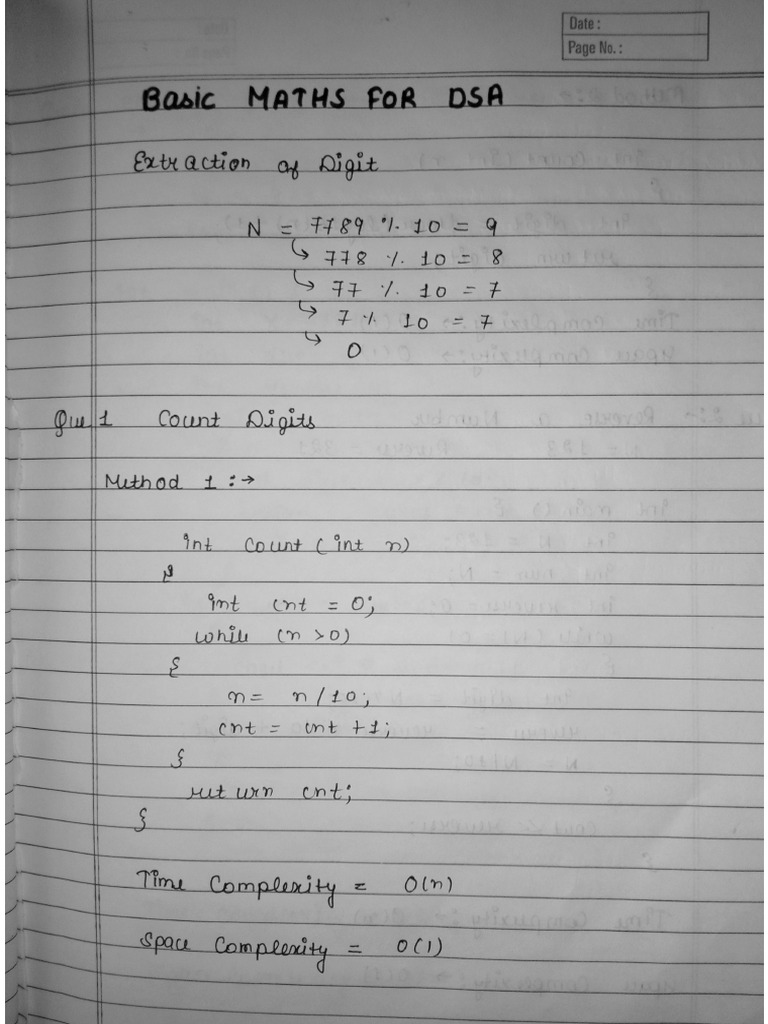 Date :
Page No. :
Basic MATHS FOR DSA
Extraction of Digit
N = 7789 % 10 = 9
↳ 778 % 10 = 8
↳ 77 % 10 = 7
↳ 7 % 10 = 7
↳ 0
Que 1 Count Digits
Method 1 :→
int Count ( int n)
{
int cnt = 0;
while (n >0)
{
n = n / 10;
cnt = cnt +1;
}
return cnt;
}
Time Complexity = O(n)
Space Complexity = O(1)